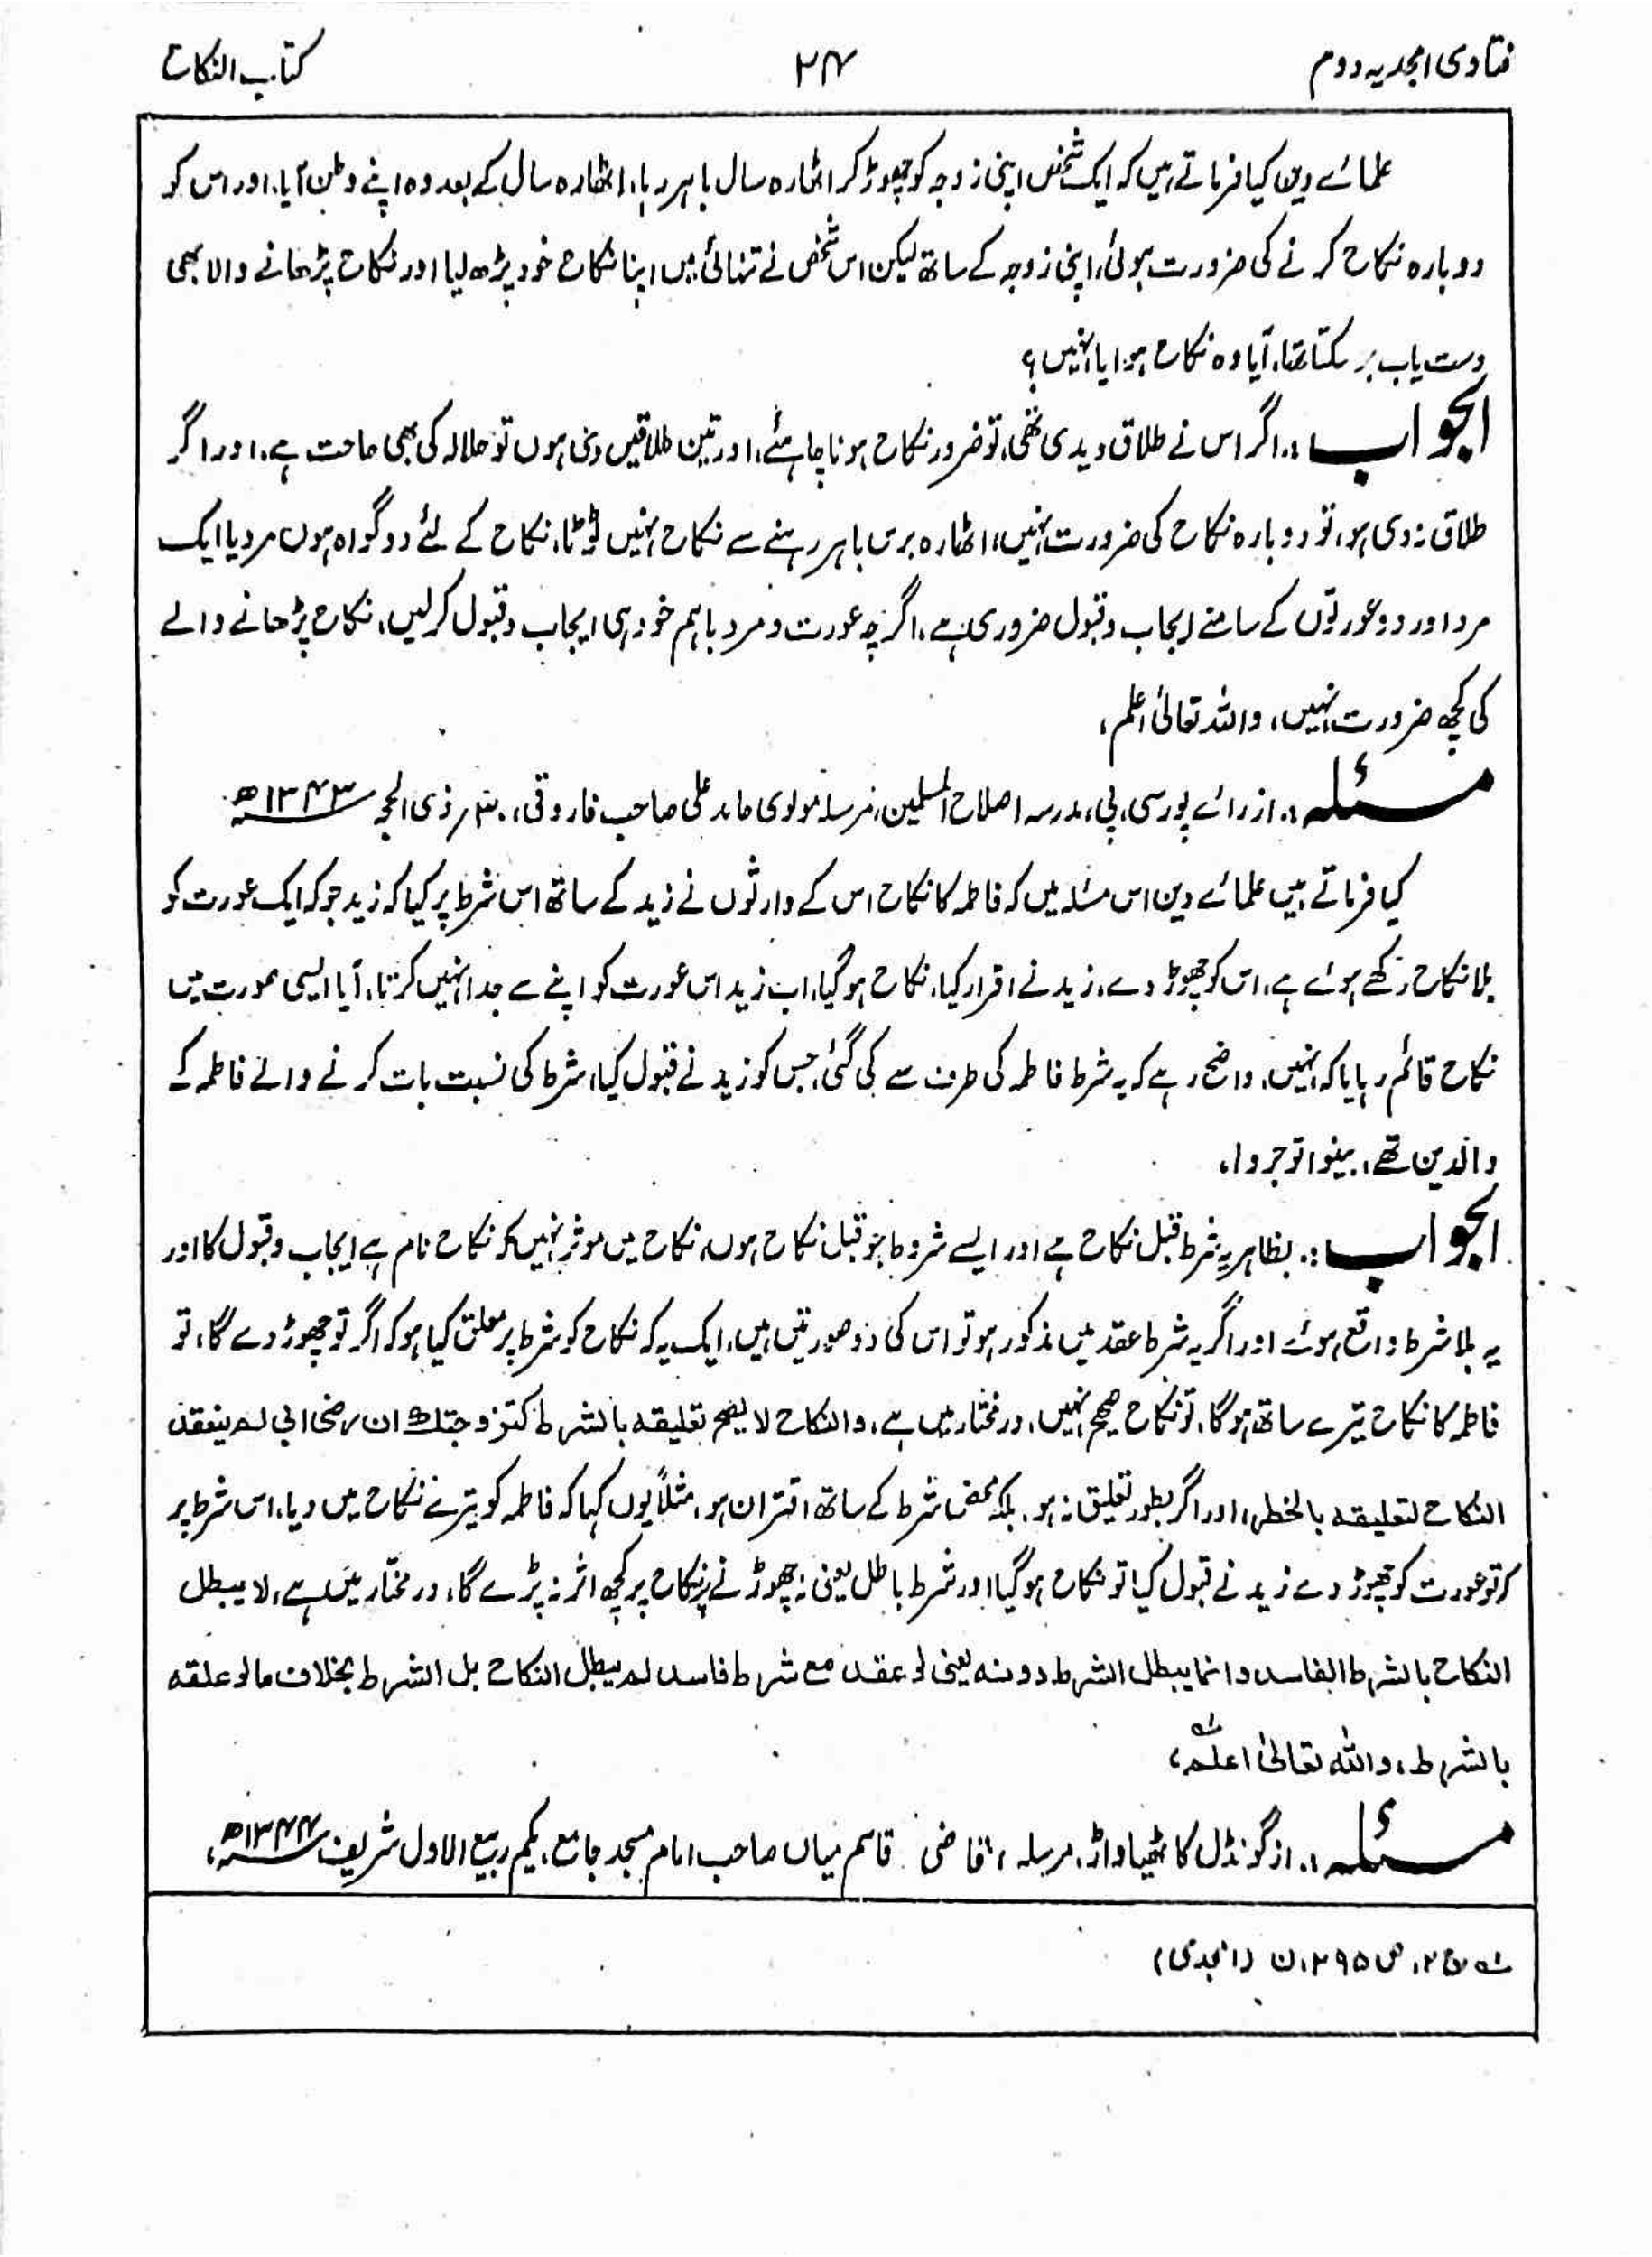 فتاویٰ امجدیہ دوم ۲۴ کتاب النکاح
علمائے دین کیا فرماتے ہیں کہ ایک شخص اپنی زوجہ کو چھوڑ کر اٹھارہ سال باہر رہا، اٹھارہ سال کے بعد وہ اپنے وطن آیا، اور اس کو
دوبارہ نکاح کرنے کی ضرورت ہوئی، اپنی زوجہ کے ساتھ لیکن اس شخص نے تنہائی میں اپنا نکاح خود پڑھ لیا اور نکاح پڑھانے والا بھی
دست یاب ہو سکتا تھا، آیا وہ نکاح ہوا یا نہیں؟
الجواب :۔ اگر اس نے طلاق دیدی تھی، تو ضرور نکاح ہونا چاہئے، اور تین طلاقیں دی ہوں تو حلالہ کی بھی حاجت ہے، اور اگر
طلاق نہ دی ہو، تو دوبارہ نکاح کی ضرورت نہیں، اٹھارہ برس باہر رہنے سے نکاح نہیں ٹوٹتا، نکاح کے لئے دو گواہ ہوں مرد یا ایک
مرد اور دو عورتوں کے سامنے ایجاب و قبول ضروری ہے، اگرچہ عورت و مرد باہم خود ہی ایجاب و قبول کر لیں، نکاح پڑھانے والے
کی کچھ ضرورت نہیں، واللہ تعالیٰ اعلم،
مسئلہ :۔ از رائے پور سی، پی، مدرسہ اصلاح المسلمین، مرسلہ مولوی حامد علی صاحب فاروقی، ۳۰ ذی الحجہ ۱۳۴۳ھ
کیا فرماتے ہیں علمائے دین اس مسئلہ میں کہ فاطمہ کا نکاح اس کے وارثوں نے زید کے ساتھ اس شرط پر کیا کہ زید جو کہ ایک عورت کو
بلا نکاح رکھے ہوئے ہے، اس کو چھوڑ دے، زید نے اقرار کیا، نکاح ہو گیا، اب زید اس عورت کو اپنے سے جدا نہیں کرتا، آیا ایسی صورت میں
نکاح قائم رہا یا کہ نہیں، واضح رہے کہ یہ شرط فاطمہ کی طرف سے کی گئی، جس کو زید نے قبول کیا، شرط کی نسبت بات کرنے والے فاطمہ کے
والدین تھے، بینوا توجروا،
الجواب :۔ بظاہر یہ شرط قبل نکاح ہے اور ایسے شروط جو قبل نکاح ہوں، نکاح میں موثر نہیں کہ نکاح نام ہے ایجاب و قبول کا اور
یہ بلا شرط واقع ہوئے اور اگر یہ شرط عقد میں مذکور ہو تو اس کی دو صورتیں ہیں، ایک یہ کہ نکاح کو شرط پر معلق کیا ہو کہ اگر تو چھوڑ دے گا، تو
فاطمہ کا نکاح تیرے ساتھ ہوگا، تو نکاح صحیح نہیں، درمختار میں ہے، والنکاح لا یصح تعلیقہ بالشرط کتزوجتك ان رضی ابی لم ینعقد
النکاح لتعلیقہ بالخطر، اور اگر بطور تعلیق نہ ہو، بلکہ محض شرط کے ساتھ اقتران ہو، مثلاً یوں کہا کہ فاطمہ کو تیرے نکاح میں دیا، اس شرط پر
کہ تو عورت کو چھوڑ دے زید نے قبول کیا تو نکاح ہو گیا اور شرط باطل یعنی نہ چھوڑنے پر نکاح پر کچھ اثر نہ پڑے گا، درمختار میں ہے، لا یبطل
النکاح بالشرط الفاسد وانما یبطل الشرط دونہ یعنی لو عقد مع شرط فاسد لم یبطل النکاح بل الشرط بخلاف ما لو علقہ
بالشرط، واللہ تعالیٰ اعلم،
مسئلہ :۔ از گونڈل کاٹھیاواڑ، مرسلہ، قاضی قاسم میاں صاحب امام مسجد جامع، یکم ربیع الاول شریف ۱۳۴۴ھ،
ج ۲، ص ۲۹۵، ن (امجدی)